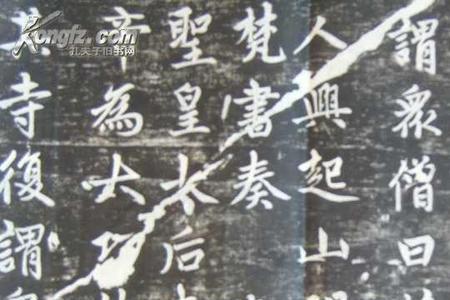 謂衆僧曰
人興起山
梵書奏
聖皇太后
帝為大
寺復謂
Kongfz.com
孔夫子旧书网